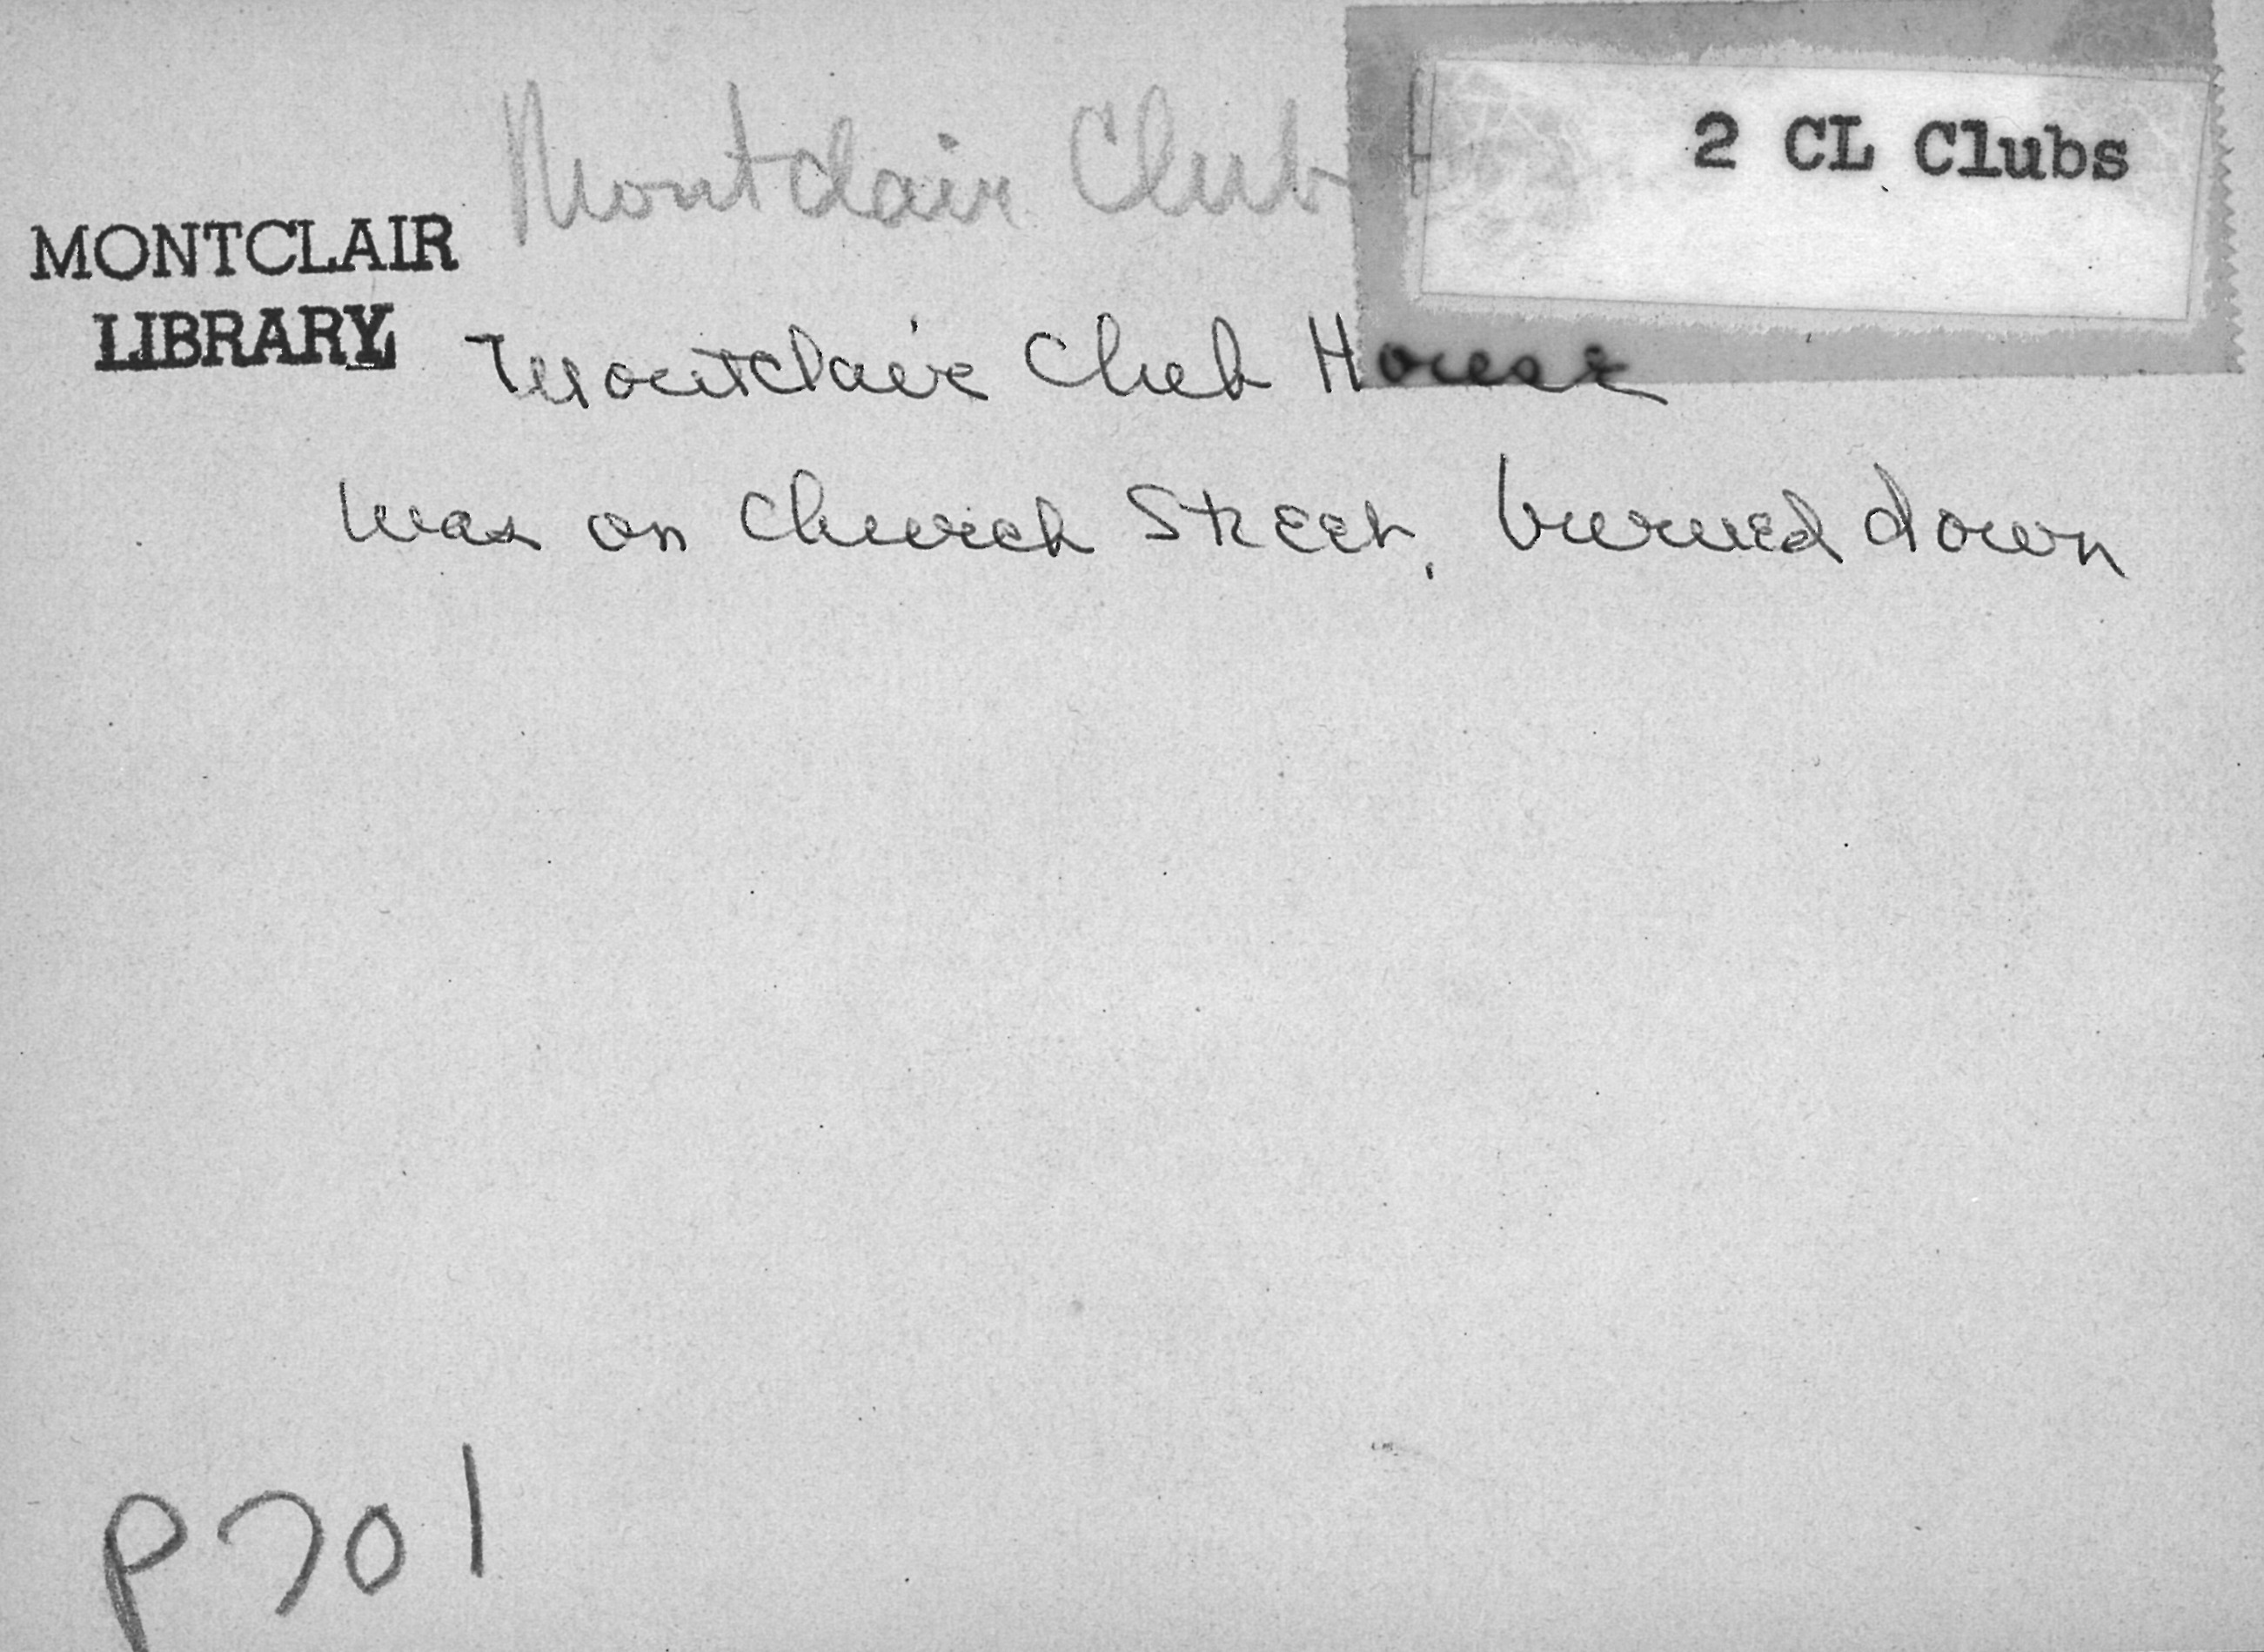 Montclair Club H
2 CL Clubs
MONTCLAIR
LIBRARY
Montclair Club House
was on Church Street, burned down
P701